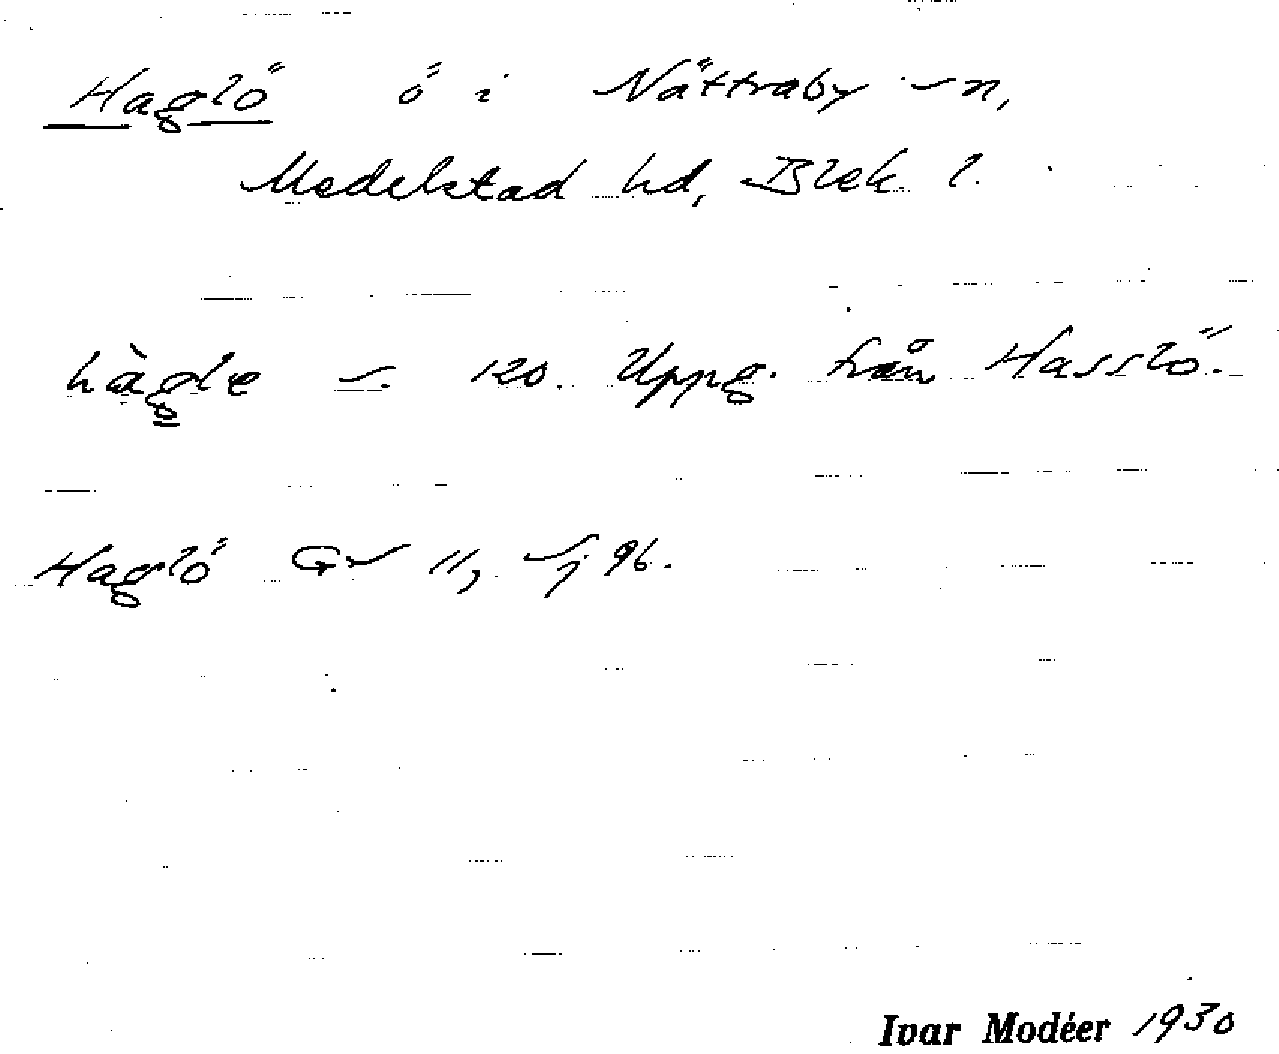 Haglö ö i Nättraby sn,
Medelstad hd, Blek l.
hàgle s. 120. Uppg. från Hasslö.
Haglö Gs 11, sj 96.
Ivar Modéer 1930